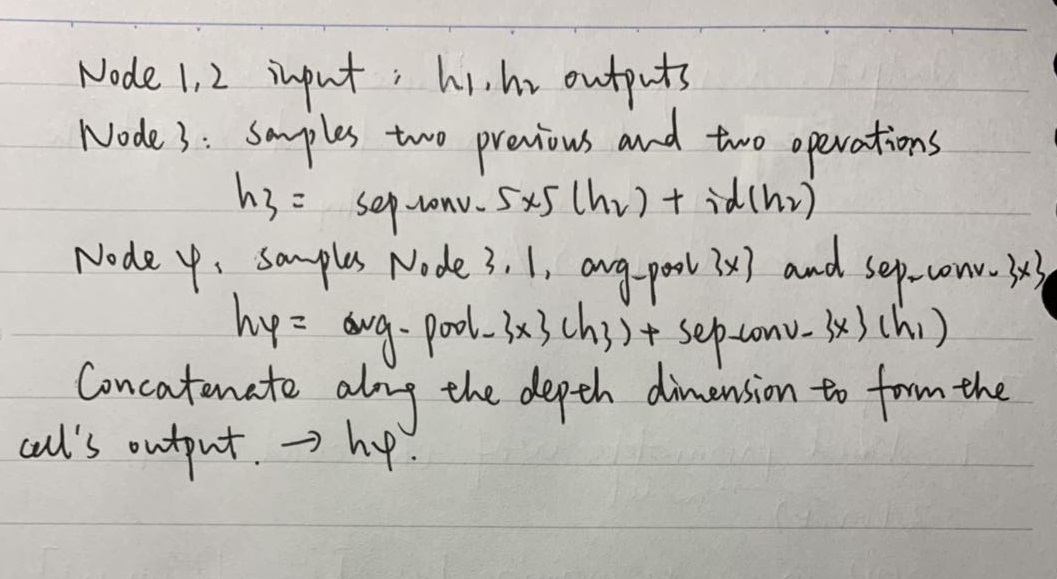 Node 1,2 input: h1, h2 outputs
Node 3: samples two previous and two operations
h3 = sep-conv-5x5 (h2) + id(h2)
Node 4, samples Node 3, 1, avg-pool 3x3 and sep-conv-3x3
h4 = avg-pool-3x3 (h3) + sep-conv-3x3 (h1)
Concatenate along the depth dimension to form the
cell's output. → h4.